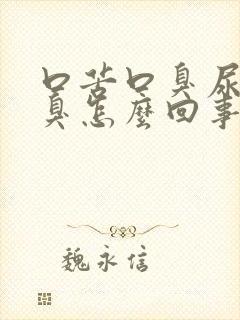 口苦口臭尿
臭怎麼回事
魏永信